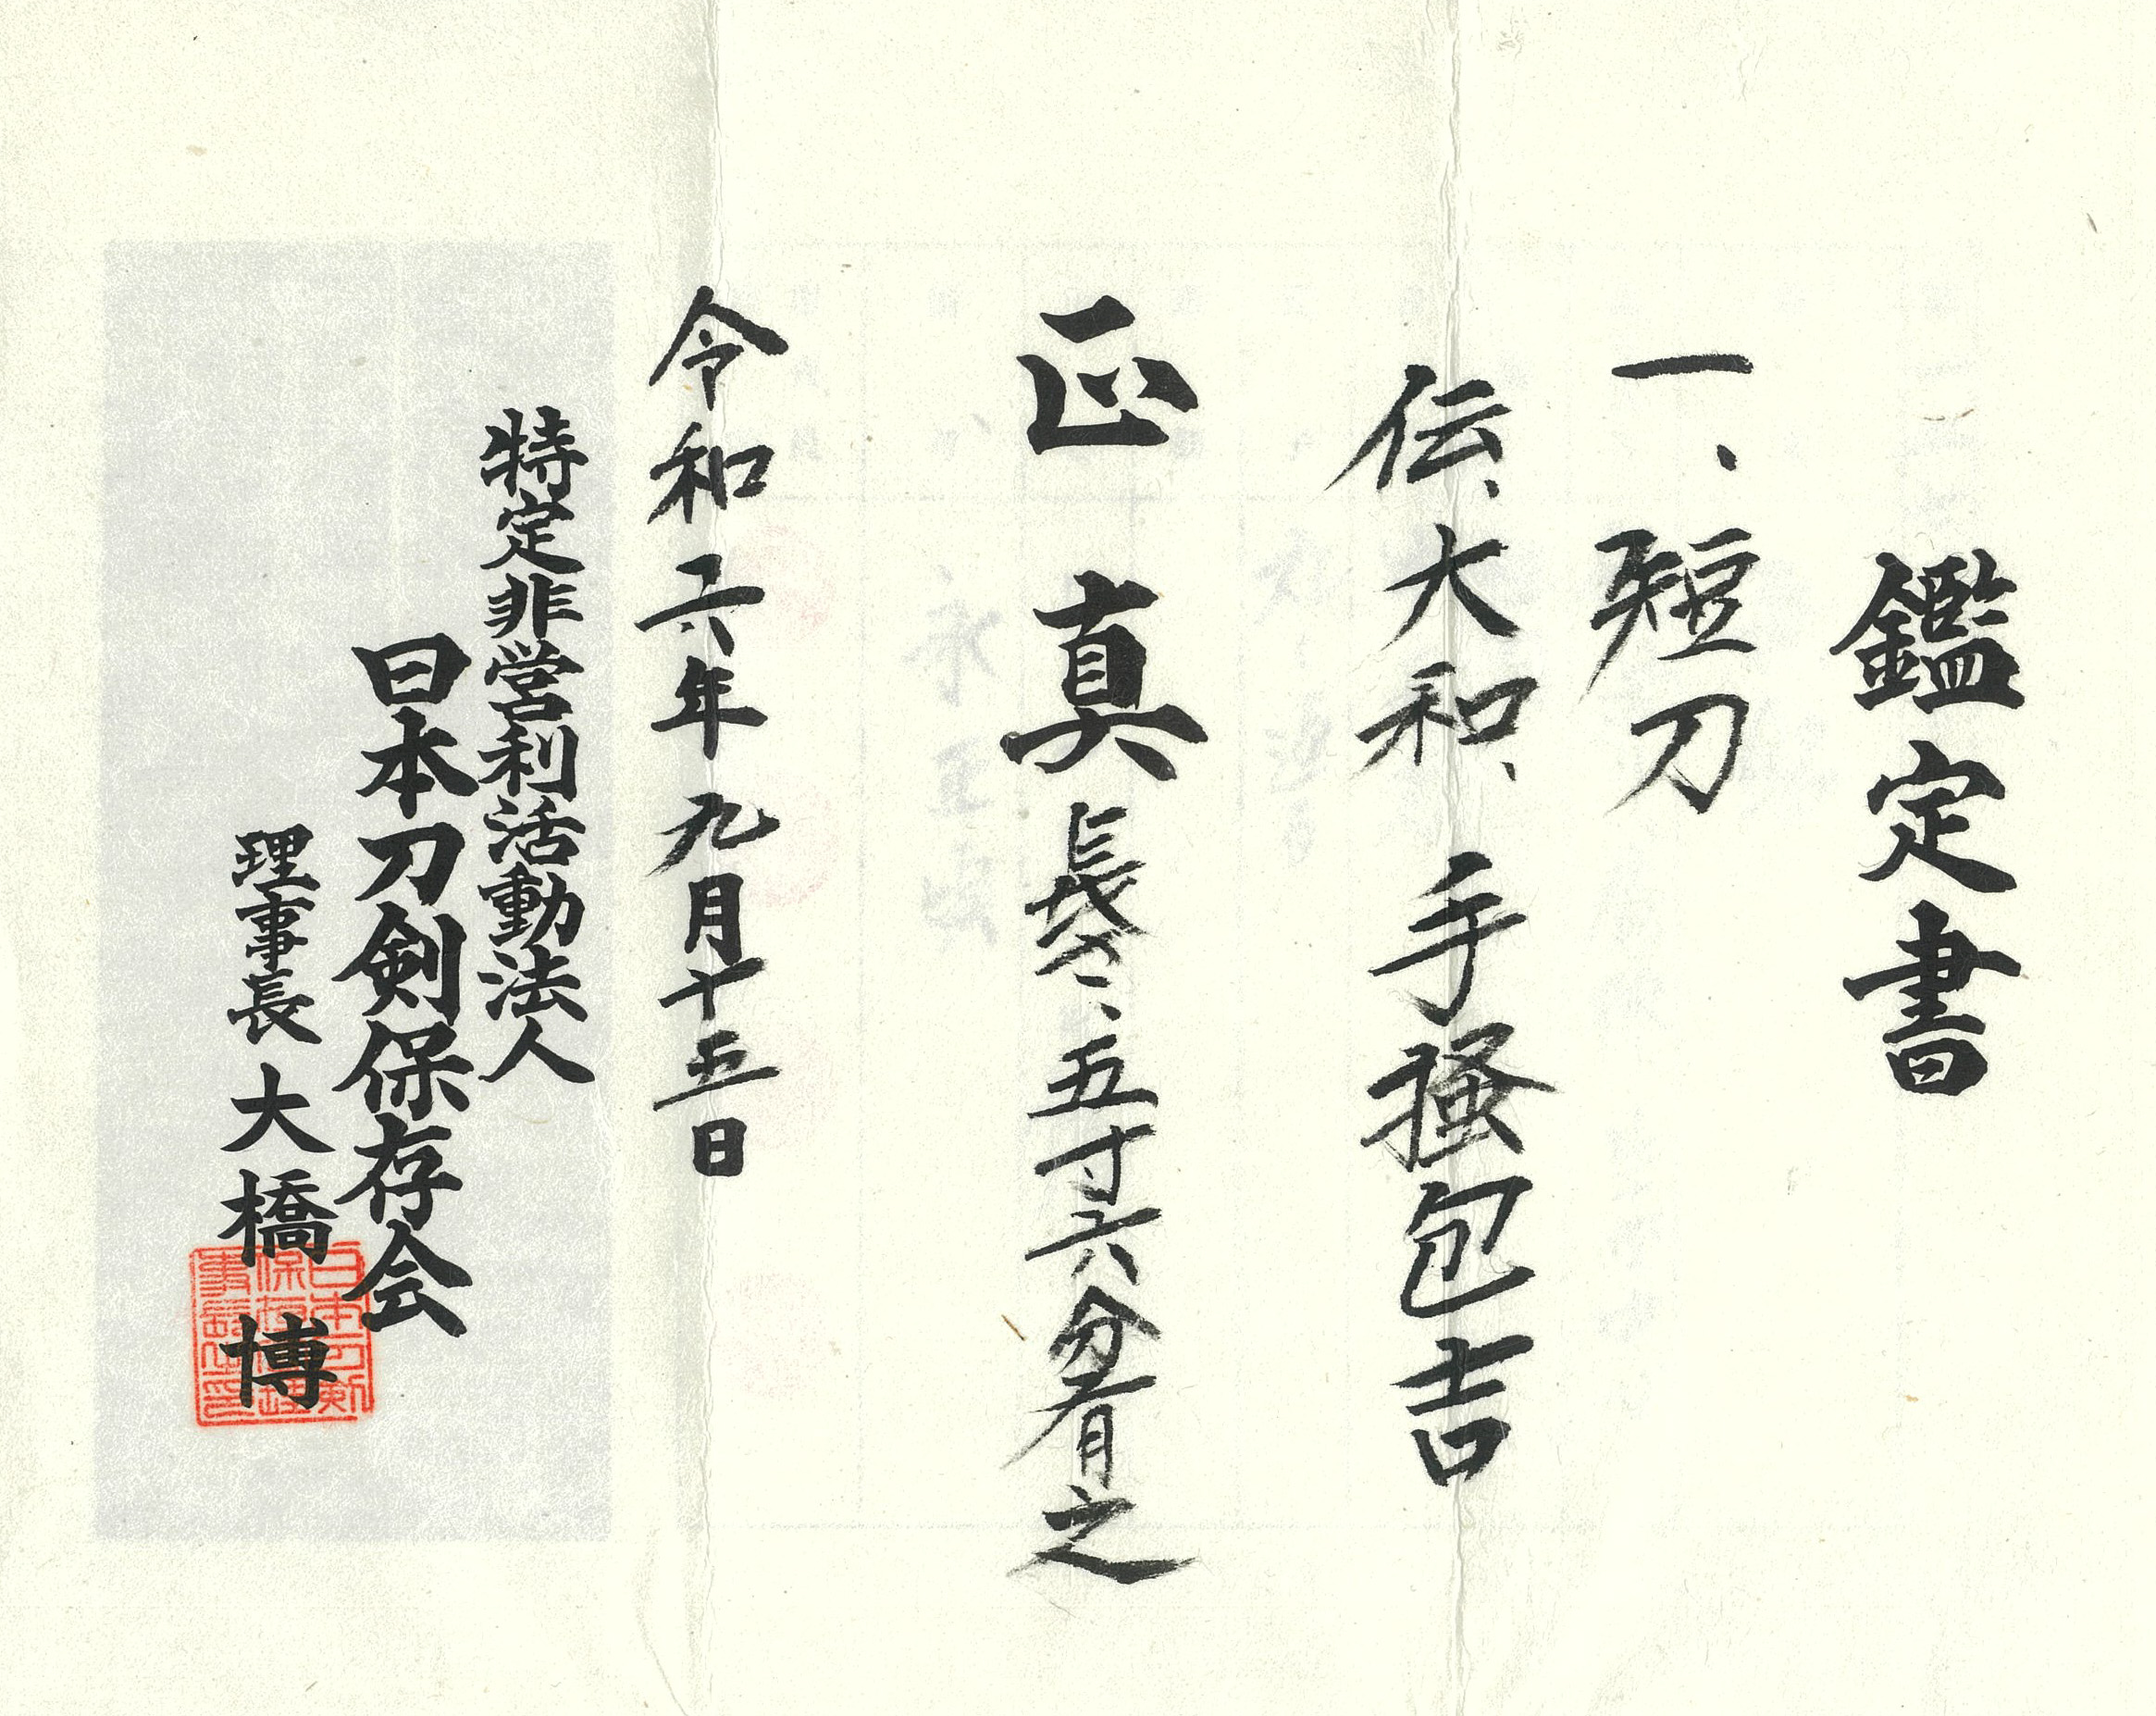 鑑定書
一、短刀
伝、大和、手掻包吉
正真 長サ、五寸六分有之
令和六年九月十五日
特定非営利活動法人
日本刀剣保存会
理事長 大橋 博